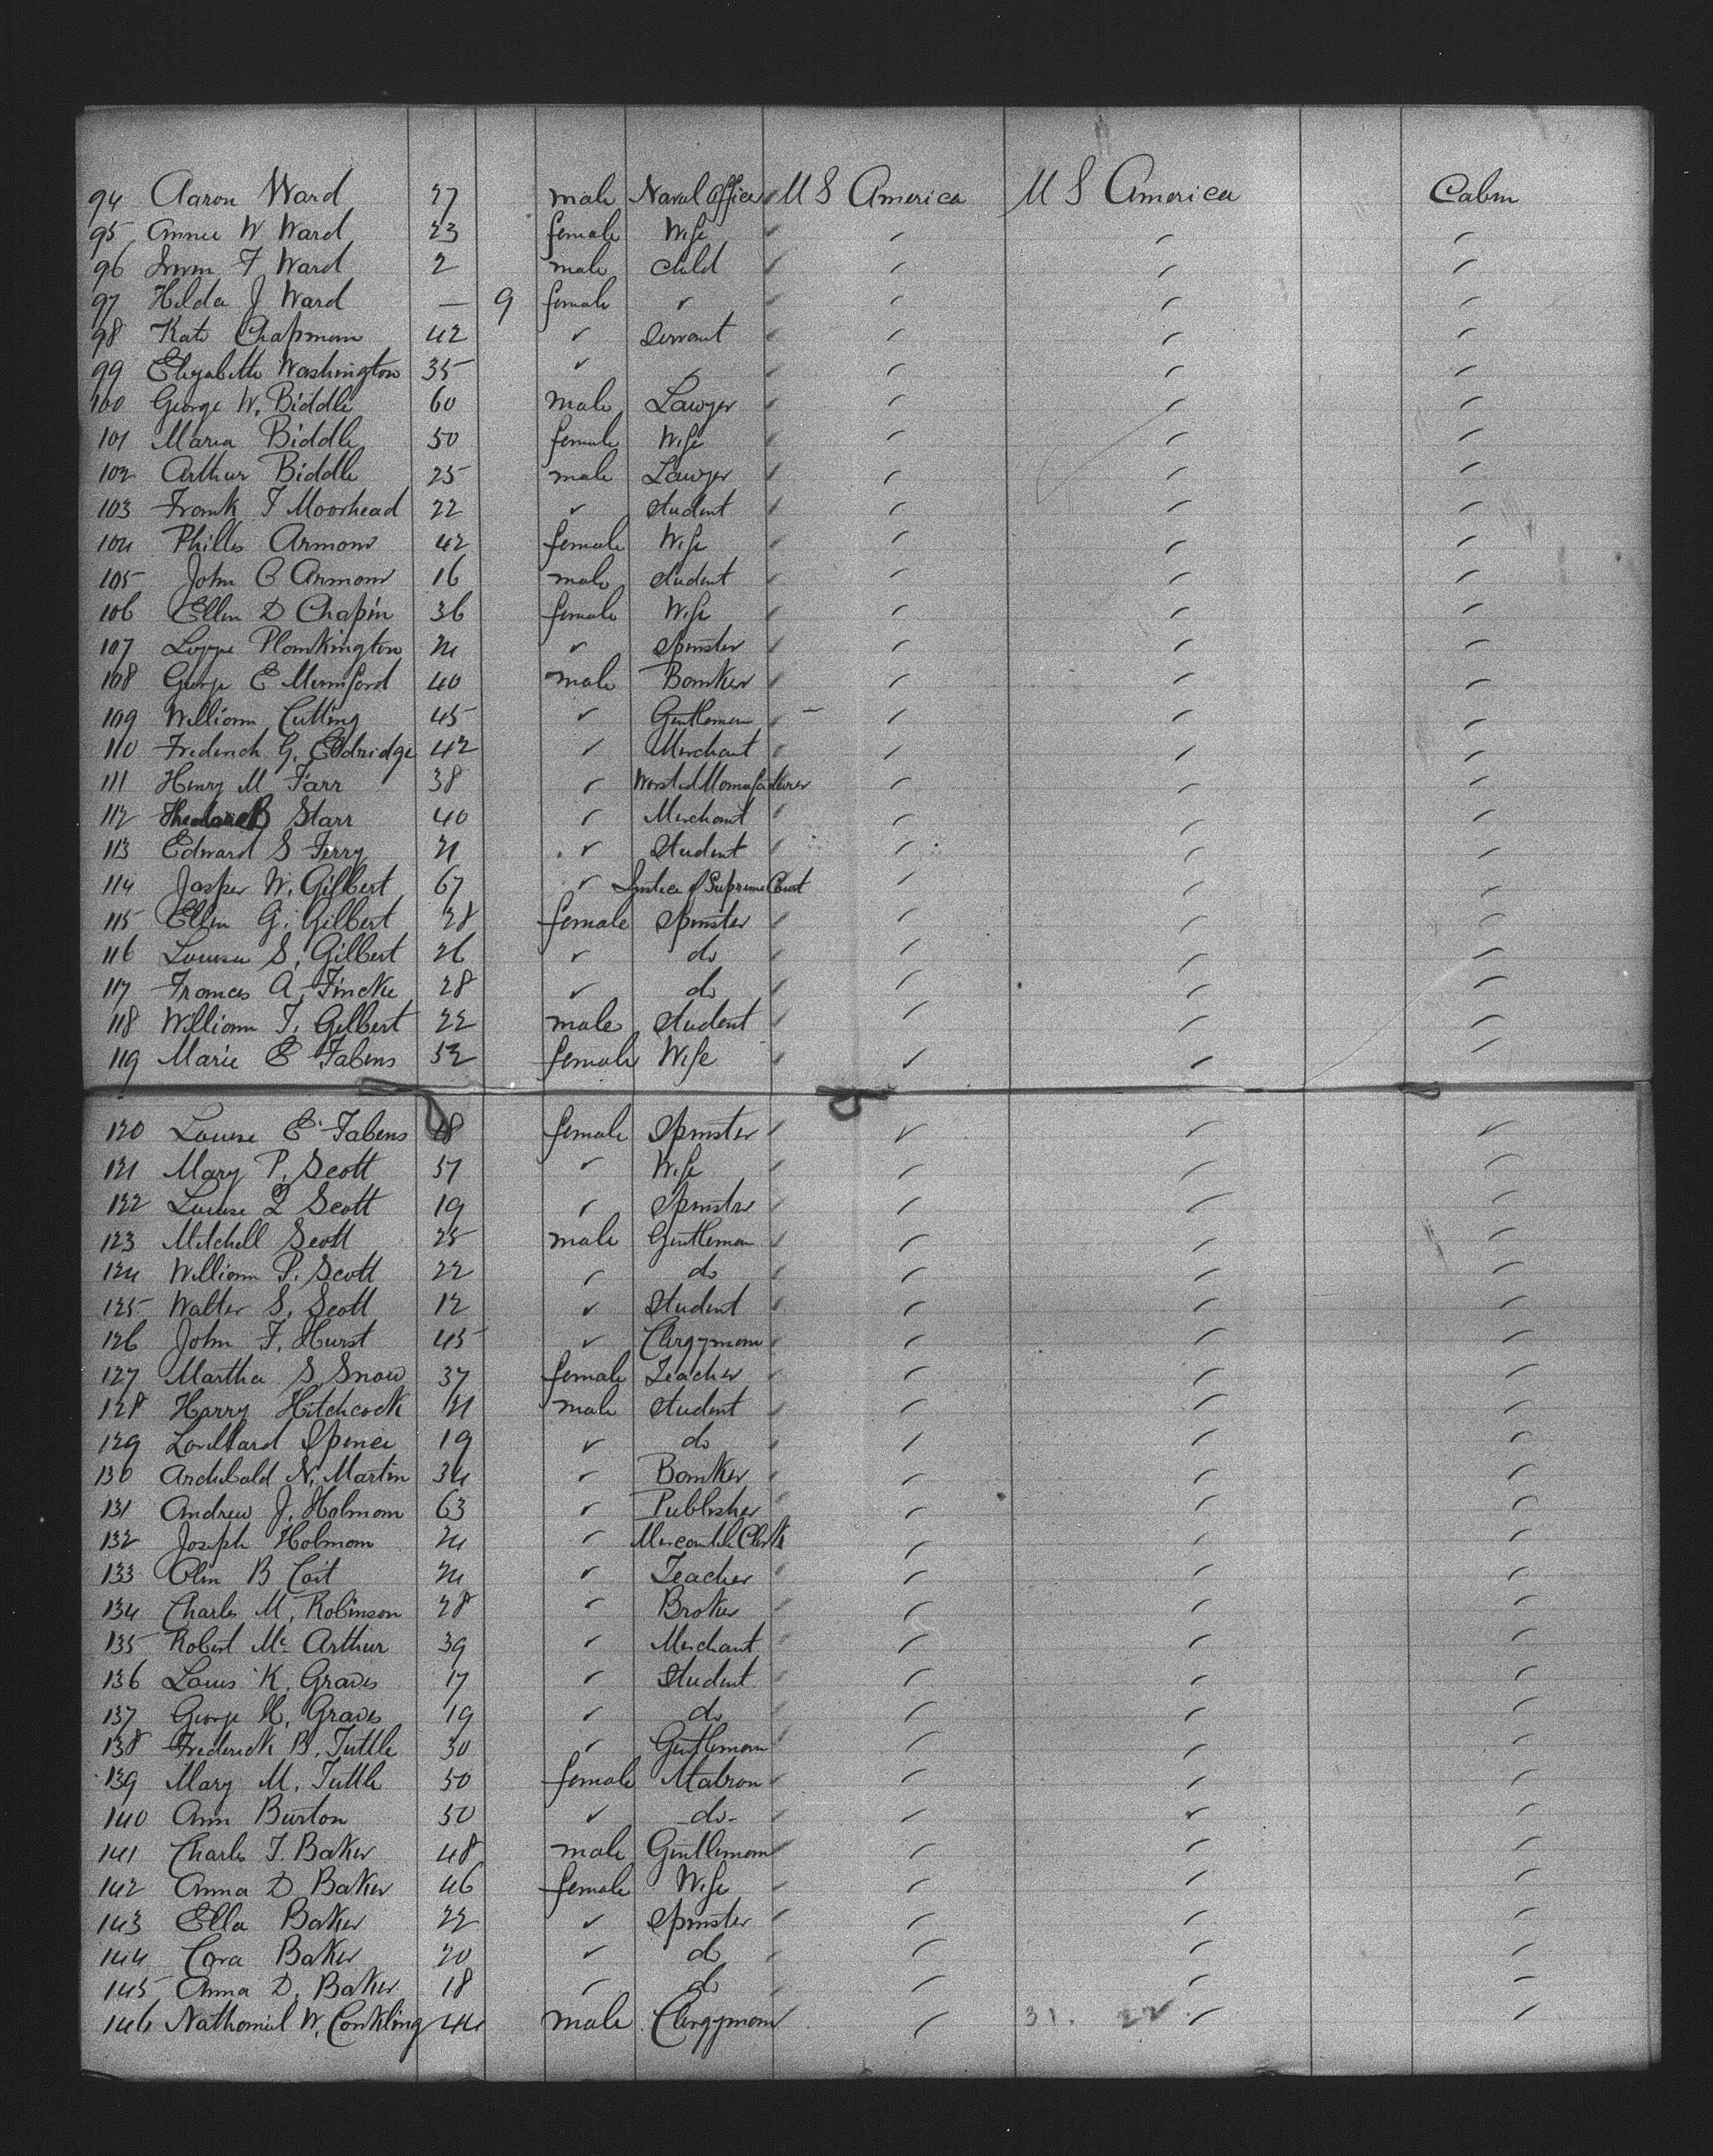 94 Aaron Ward 27 male Naval Officer U S America U S America Cabin
95 Annie W Ward 23 female Wife
96 F Ward 2 male Child
97 Hilda J Ward — 9 female "
98 Kate Chapman 42 " Servant
99 Elizabeth Washington 35 " "
100 George W. Biddle 60 male Lawyer
101 Maria Biddle 50 female Wife
102 Arthur Biddle 25 male Lawyer
103 Frank T Moorhead 22 " Student
104 Phillis Armour 42 female Wife
105 John C Armour 16 male Student
106 Ellen D Chapin 36 female Wife
107 Plankington 24 " Spinster
108 George E Mumford 40 male Banker
109 William Cutting 45 " Gentleman
110 Frederick G. Eldridge 42 " Merchant
111 Henry M Farr 38 " Worsted Manufacturer
112 Theodore B Starr 40 " Merchant
113 Edward S Terry 21 " Student
114 Jasper W. Gilbert 67 " Justice of Supreme Court
115 Ellen G. Gilbert 28 female Spinster
116 Louisa S. Gilbert 26 " do
117 Frances A. Fincke 28 " do
118 William T. Gilbert 22 male Student
119 Marie E Fabens 52 female Wife
120 Louise E Fabens 18 female Spinster
121 Mary P. Scott 51 " Wife
122 Louise Scott 19 " Spinster
123 Mitchell Scott 25 male Gentleman
124 William P. Scott 22 " do
125 Walter S. Scott 12 " Student
126 John F. Hurst 45 " Clergyman
127 Martha S. Snow 37 female Teacher
128 Harry Hitchcock 21 male Student
129 Lorillard Spencer 19 " do
130 Archibald N. Martin 34 " Banker
131 Andrew J. Holman 63 " Publisher
132 Joseph Holman 24 " Mercantile Clerk
133 Olin B Coit 24 " Teacher
134 Charles M. Robinson 28 " Broker
135 Robert Mc Arthur 39 " Merchant
136 Louis K. Graves 17 " Student
137 George H. Graves 19 " do
138 Frederick B. Tuttle 30 " Gentleman
139 Mary M. Tuttle 50 female Matron
140 Ann Burton 50 " do
141 Charles T. Baker 48 male Gentleman
142 Anna D Baker 46 female Wife
143 Ella Baker 22 " Spinster
144 Cora Baker 20 " do
145 Anna D. Baker 18 " do
146 Nathaniel W. Conkling 44 male Clergyman 31. 22